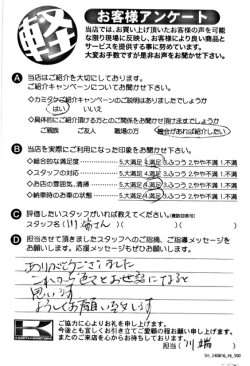 軽
お客様アンケート
当店では、お買い上げ頂いたお客様の声を可能
な限り現場に反映し、お客様により良い商品と
サービスを提供する事に努めています。
大変お手数ですが是非お声をお聞かせ下さい。
A 当店はご紹介を大切にしております。
ご紹介キャンペーンについてお聞かせ下さい。
◇カミタケご紹介キャンペーンのご説明はありましたでしょうか
はい いいえ
◇具体的にご紹介頂ける方とのご関係をお聞かせ頂けますでしょうか
ご親族 ご友人 職場の方 機会があれば紹介したい
B 当店を実際にご利用になった印象をお聞かせ下さい。
◇総合的な満足度 5.大満足 4.満足 3.ふつう 2.やや不満 1.不満
◇スタッフの対応 5.大満足 4.満足 3.ふつう 2.やや不満 1.不満
◇お店の雰囲気、清掃 5.大満足 4.満足 3.ふつう 2.やや不満 1.不満
◇納車時のお車の状態 5.大満足 4.満足 3.ふつう 2.やや不満 1.不満
C 評価したいスタッフがいれば教えてください。(複数回答可)
スタッフ名(川端さん)( )( )
D 担当させて頂きましたスタッフへのご指摘、ご指導メッセージを
お願いします。応援メッセージもぜひお願いします。
ありがとうございました
これからも色々とお世話になると
思います
よろしくお願い致します
ご協力に心よりお礼を申し上げます。
今後とも宜しくお引き立てご愛顧の程お願い申し上げます。
またのご来店を心からお待ちしております。
担当(川端)